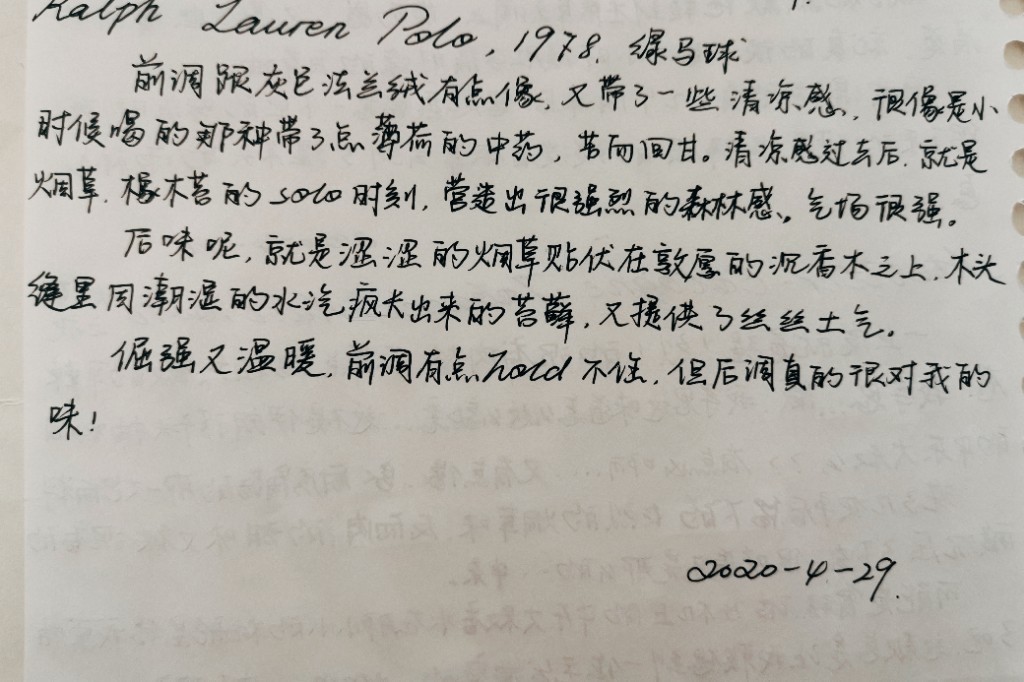 Ralph Lauren Polo, 1978. 绿马球
前调跟灰色法兰绒有点像，又带了一些清凉感，很像是小
时候喝的那种带了点薄荷的中药，苦而回甘。清凉感过去后，就是
烟草，橡木苔的 solo 时刻，营造出很强烈的森林感。气场很强。
后味呢，就是涩涩的烟草贴伏在敦厚的沉香木之上，木头
缝里因潮湿的水汽疯长出来的苔藓，又提供了丝丝土气。
倔强又温暖，前调有点hold不住，但后调真的很对我的
味！
2020-4-29.